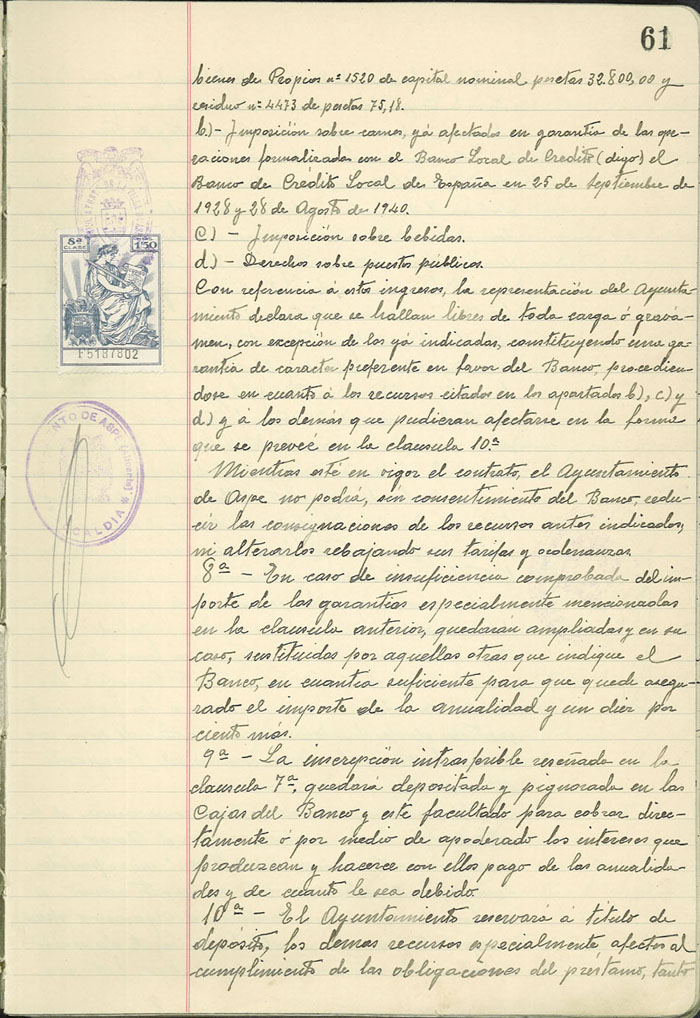 61
bienes de Propios nº 1520 de capital nominal pesetas 32.800,00 y
residuo nº 4473 de pesetas 75,18.
b)- Imposición sobre carnes, yá afectados en garantía de las ope-
raciones formalizadas con el Banco Local de Credito (digo) el
Banco de Crédito Local de España en 25 de Septiembre de
1928 y 28 de Agosto de 1940.
c) - Imposición sobre bebidas.
d) - Derechos sobre puestos públicos.
Con referencia á estos ingresos, la representación del Ayunta-
miento declara que se hallan libres de toda carga ó gravá-
men, con excepción de los yá indicados, constituyendo una ga-
rantía de caracter preferente en favor del Banco, procedien-
dose en cuanto á los recursos citados en los apartados b), c) y
d) y á los demás que pudieran afectarse en la forma
que se preveé en la clausula 10ª
Mientras esté en vigor el contrato, el Ayuntamiento
de Aspe no podrá, sin consentimiento del Banco, redu-
cir las consignaciones de los recursos antes indicados,
ni alterarlos rebajando sus tarifas y ordenanzas.
8ª - En caso de insuficiencia comprobada del im-
porte de las garantías especialmente mencionadas
en la clausula anterior, quedarán ampliadas y en su
caso, sustituidas por aquellas otras que indique el
Banco, en cuantia suficiente para que quede asegu-
rado el importe de la anualidad y un diez por
ciento más.
9ª - La inscripción intrasferible reseñada en la
clausula 7ª, quedará depositada y pignorada en las
Cajas del Banco y este facultado para cobrar direc-
tamente ó por medio de apoderado los intereses que
produzcan y hacerce con ellos pago de las anualida-
des y de cuanto le sea debido.
10ª - El Ayuntamiento reservará á título de
depósito, los demas recursos especialmente afectos al
cumplimiento de las obligaciones del préstamo, tanto
8ª CLASE 1'50
F5187802
NTO DE ASPE (Alicante)
ALCALDIA